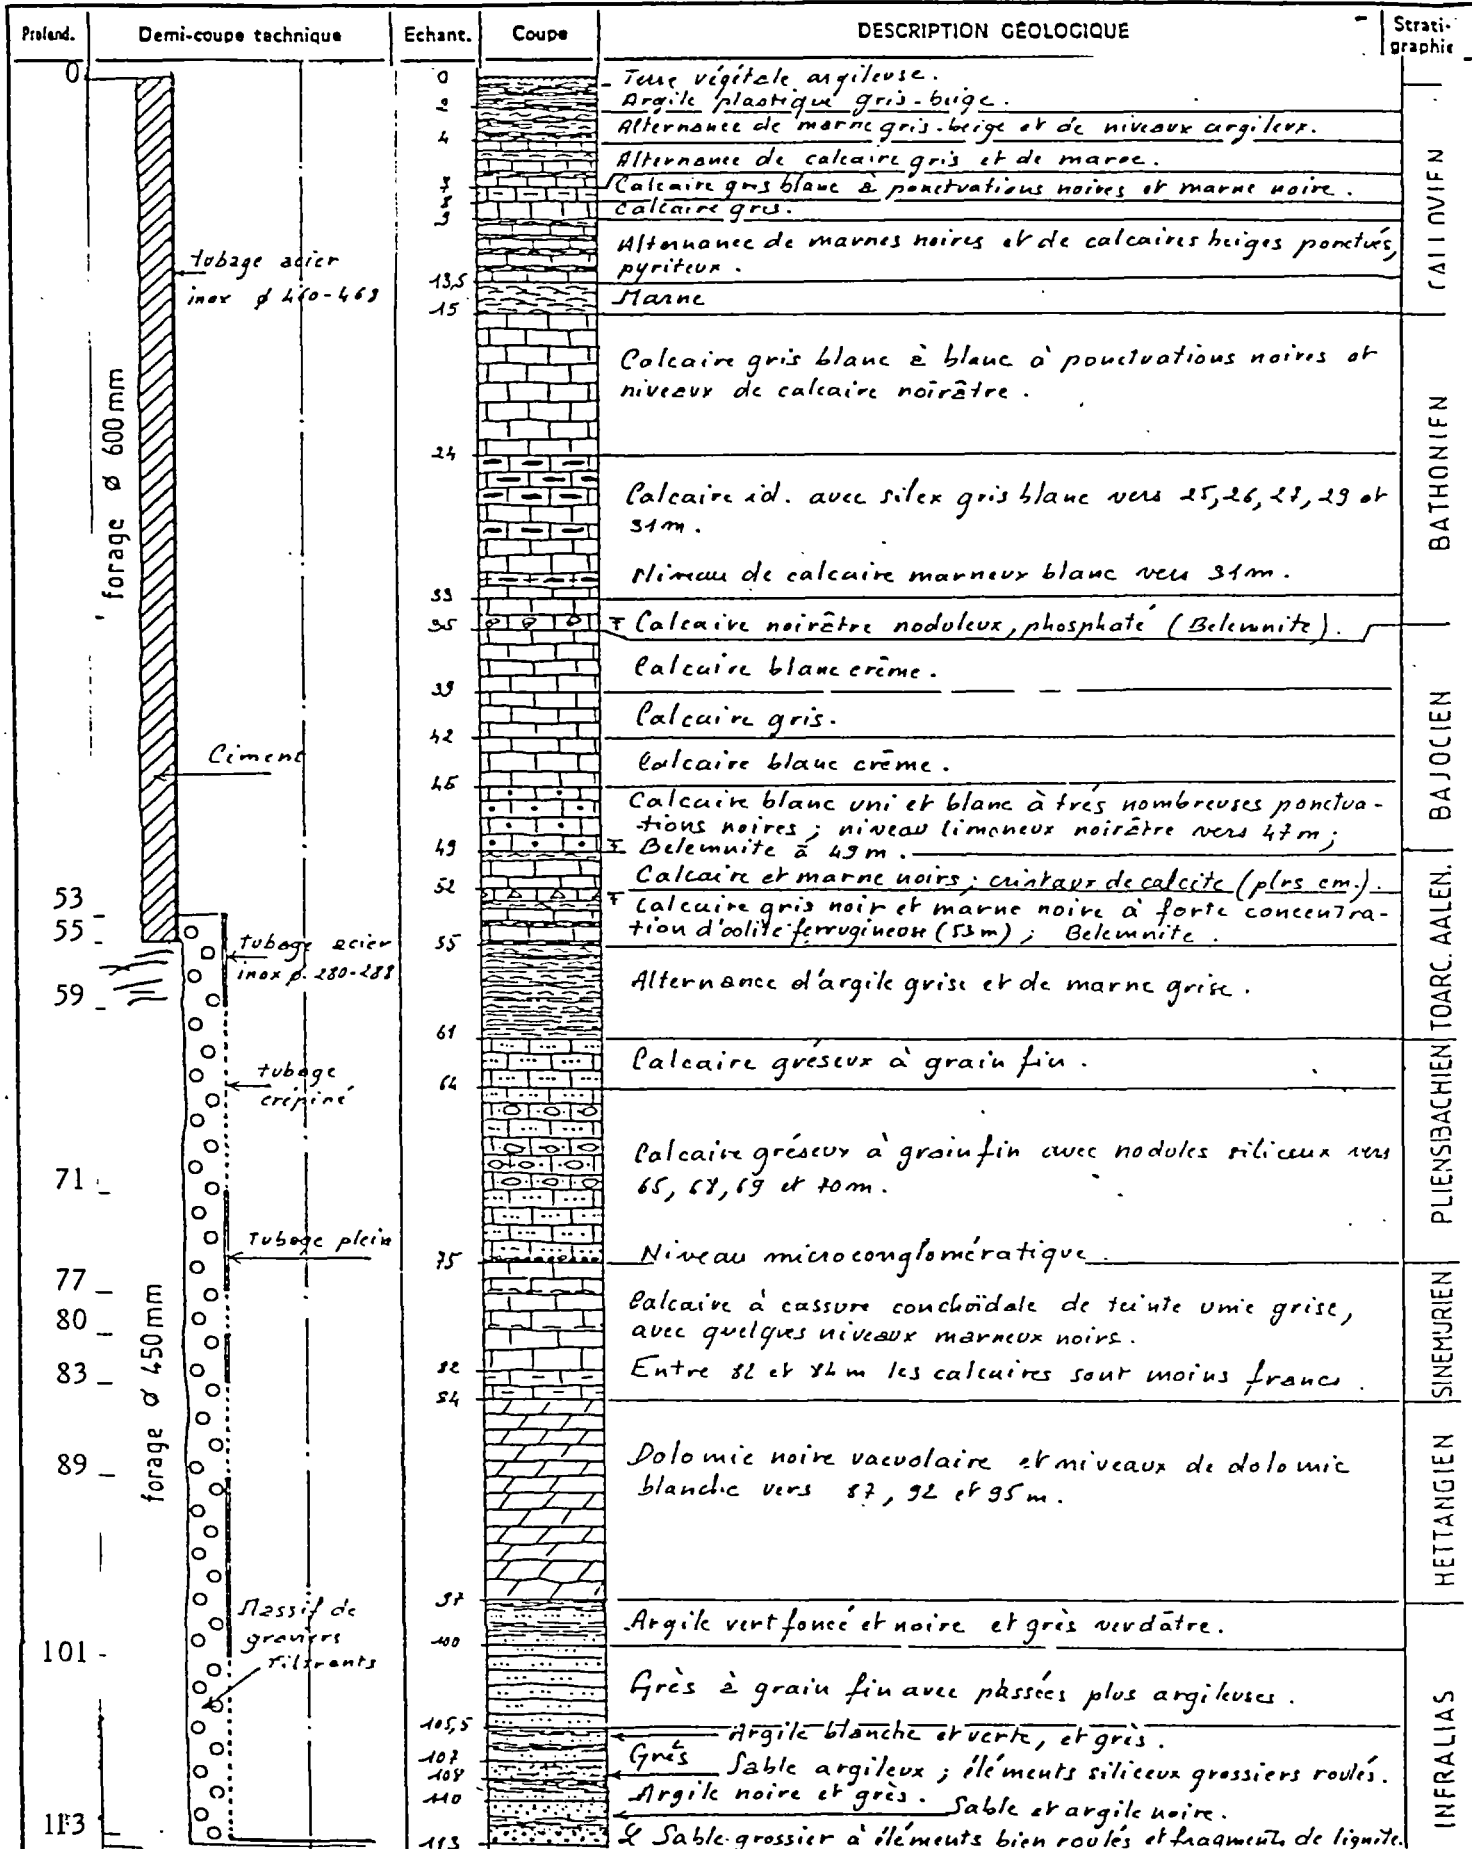 Profond. Demi-coupe technique Echant. Coupe DESCRIPTION GÉOLOGIQUE Strati-
graphie
0
53
55
59
71
77
80
83
89
101
113
forage ø 600mm
forage ø 450mm
tubage acier
inox ø 460-469
Ciment
tubage acier
inox ø 280-288
tubage
crépiné
Tubage plein
Massif de
graviers
filtrants
0
2
4
7
8
9
13,5
15
24
33
35
39
42
45
49
52
55
61
64
75
82
84
97
100
105,5
107
108
110
113
Terre végétale argileuse.
Argile plastique gris-beige.
Alternance de marne gris-beige et de niveaux argileux.
Alternance de calcaire gris et de marne.
Calcaire gris blanc à ponctuations noires et marne noire.
Calcaire gris.
Alternance de marnes noires et de calcaires beiges ponctués,
pyriteux.
Marne
Calcaire gris blanc à blanc à ponctuations noires et
niveaux de calcaire noirâtre.
Calcaire id. avec silex gris blanc vers 25, 26, 27, 29 et
31m.
Niveau de calcaire marneux blanc vers 31m.
F Calcaire noirâtre noduleux, phosphaté (Belemnite).
Calcaire blanc crème.
Calcaire gris.
Calcaire blanc crème.
Calcaire blanc uni et blanc à très nombreuses ponctua-
-tions noires ; niveau limoneux noirâtre vers 47m ;
F Belemnite à 49m.
Calcaire et marne noirs ; cristaux de calcite (plrs cm.).
F Calcaire gris noir et marne noire à forte concentra-
-tion d'oolite ferrugineuse (53m) ; Belemnite.
Alternance d'argile grise et de marne grise.
Calcaire gréseux à grain fin.
Calcaire gréseux à grain fin avec nodules siliceux vers
65, 68, 69 et 70m.
Niveau microconglomératique.
Calcaire à cassure conchoïdale de teinte unie grise,
avec quelques niveaux marneux noirs.
Entre 82 et 84m les calcaires sont moins francs.
Dolomie noire vacuolaire et niveaux de dolomie
blanche vers 87, 92 et 95m.
Argile vert foncé et noire et grès verdâtre.
Grès à grain fin avec passées plus argileuses.
Argile blanche et verte, et grès.
Grès
Sable argileux ; éléments siliceux grossiers roulés.
Argile noire et grès.
Sable et argile noire.
Sable grossier à éléments bien roulés et fragments de lignite.
CALLOVIEN
BATHONIEN
BAJOCIEN
AALEN.
TOARC.
PLIENSBACHIEN
SINEMURIEN
HETTANGIEN
INFRALIAS